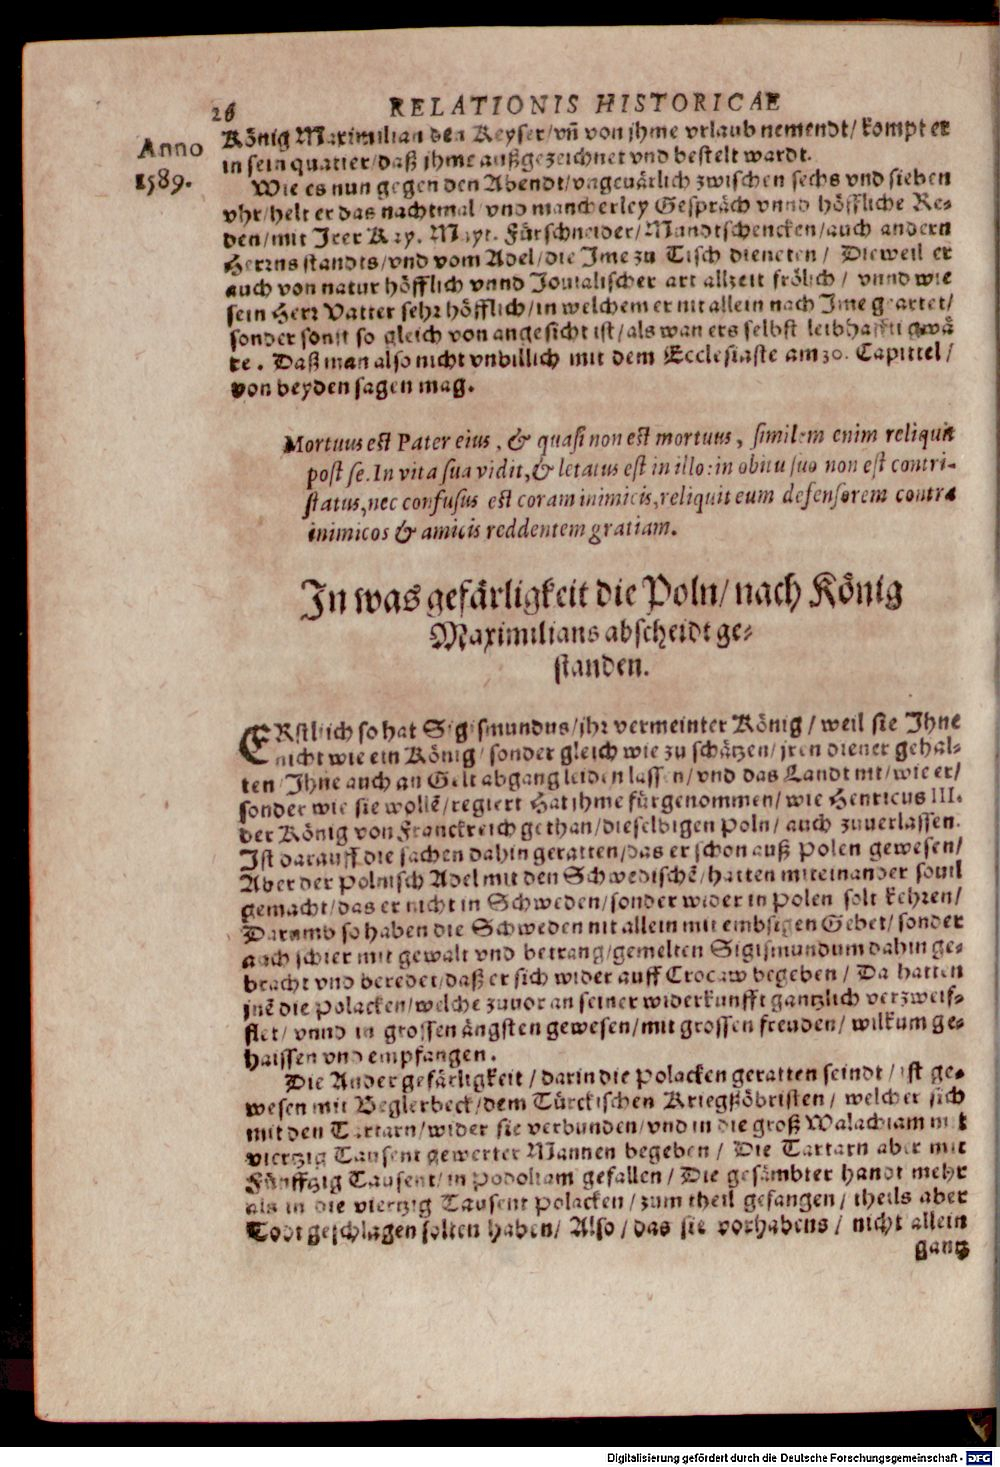 26 RELATIONIS HISTORICAE
Anno
1589.
König Maximilian den Keyser/vñ von jhme vrlaub nemendt/kompt er
in sein quatier/daß jhme außgezeichnet vnd bestelt wardt.
Wie es nun gegen den Abendt/vngeuärlich zwischen sechs vnd sieben
vhr/helt er das nachtmal vnd mancherley Gespräch vnnd höffliche Re-
den/mit Jrer Kay. Mayt. Fürschneider/Mandtschencken/auch andern
Herrnstandts/vnd vom Adel/die Jme zu Tisch dieneten/ Dieweil er
auch von natur höfflich vnnd Jouialischer art allzeit frölich/ vnnd wie
sein Herr Vatter sehr höfflich/in welchem er nit allein nach Jme geartet/
sonder sonst so gleich von angesicht ist/als wan ers selbst leibhafftig wä
re. Daß man also nicht vnbillich mit dem Ecclesiaste am 30. Capittel/
von beyden sagen mag.
Mortuus est Pater eius, & quasi non est mortuus, similem enim reliquit
post se. In vita sua vidit, & letatus est in illo: in obitu suo non est contri-
status, nec confusus est coram inimicis, reliquit eum defensorem contra
inimicos & amicis reddentem gratiam.
In was gefärligkeit die Poln/ nach König
Maximilians abscheidt ge-
standen.
ERstlich so hat Sigismundus/jhr vermeinter König/ weil sie Jhne
nicht wie ein König/ sonder gleich wie zu schätzen/ jren diener gehal-
ten/Jhne auch an Gelt abgang leiden lassen/ vnd das Landt nit/wie er/
sonder wie sie wollē/regiert Hat jhme fürgenommen/ wie Henricus III.
der König von Franckreich gethan/dieselbigen Poln/ auch zuuerlassen.
Ist darauff die sachen dahin geratten/das er schon auß Polen gewesen/
Aber der Polnisch Adel mit den Schwedischē/hatten miteinander souil
gemacht/das er nicht in Schweden/sonder wider in Polen solt kehren/
Darumb so haben die Schweden nit allein mit embsigen Gebet/ sonder
auch schier mit gewalt vnd betrang/gemelten Sigismundum dahin ge-
bracht vnd beredet/daß er sich wider auff Crocaw begeben/ Da hatten
jnē die Polacken/welche zuuor an seiner widerkunfft gantzlich verzweif-
flet/ vnnd in grossen ängsten gewesen/mit grossen freuden/ wilkum ge-
haissen vnd empfangen.
Die Ander gefärligkeit/ darin die Polacken geratten seindt/ ist ge-
wesen mit Beglerbeck/dem Türckischen Kriegßöbristen/ welcher sich
mit den Tartarn/wider sie verbunden/vnd in die groß Walachiam mit
viertzig Tausent gewerter Mannen begeben/ Die Tartarn aber mit
Fünfftzig Tausent/in Podoliam gefallen/ Die gesämbter handt mehr
als in die viertzig Tausent Polacken/ zum theil gefangen/ theils aber
Todt geschlagen sollen haben/ Also/ das sie vorhabens/ nicht allein
gantz
Digitalisierung gefördert durch die Deutsche Forschungsgemeinschaft - DFG